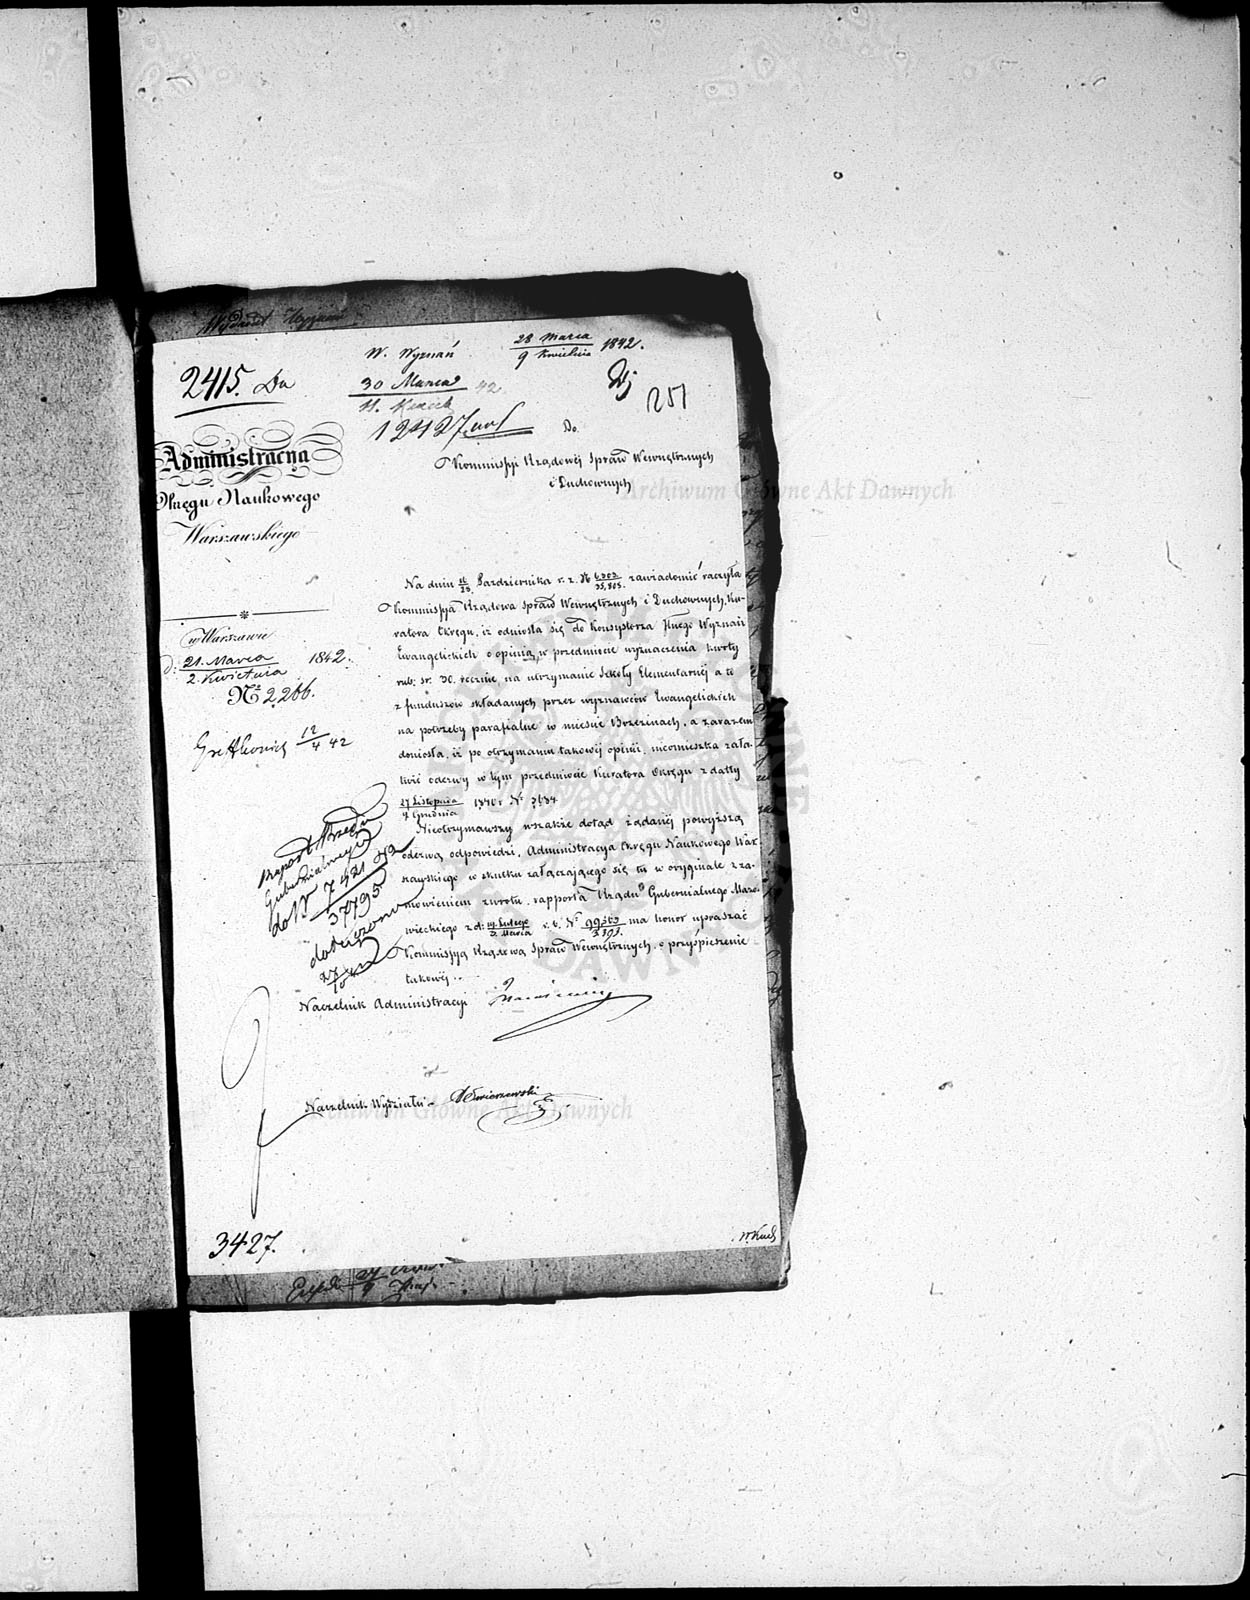 Wydział Wyznań
W. Wyznań 28 Marca / 9 Kwietnia 1842.
2415. Da
30 Marca / 11. 42
251
12427
Do
Kommissyi Rządowéj Spraw Wewnętrznych
i Duchownych
Administracya
Okręgu Naukowego
Warszawskiego
w Warszawie
d: 21. Marca / 2. Kwietnia 1842.
Nº 2266.
12/4 42
Na dniu 16/28 Października r. z. Nº 6303/35,805. zawiadomić raczyła
Kommissya Rządowa Spraw Wewnętrznych i Duchownych, Ku-
ratora Okręgu, iż odniosła się do Konsystorza Jlnego Wyznań
Ewangelickich o opinią, w przedmiocie wyznaczenia kwoty
rub: sr. 30. rocznie, na utrzymanie Szkoły Elementarnéj a to
z funduszów składanych przez wyznawców Ewangelickich
na potrzeby parafialne w mieście Brzezinach, a zarazem
doniosła, iż po otrzymaniu takowéj opinii, nieomieszka zała-
twić odezwy w tym przedmiocie Kuratora Okręgu z datty
27 Listopada / 9 Grudnia 1840 r Nº 3684.
Nieotrzymawszy wszakże dotąd żądanéj powyższą
odezwą odpowiedzi, Administracya Okręgu Naukowego War-
szawskiego w skutku załączającego się tu w oryginale z za-
mówieniem zwrotu, rapportu Rządu Gubernialnego Mazo-
wieckiego z d: Lutego / Marca r. b. Nº ma honor upraszać
Kommissyą Rządową Spraw Wewnętrznych, o przyśpieszenie
takowéj.
raport Rządu
Gubernialnego
do Nº 7421 42
37795
dołączono
27
Naczelnik Administracyi
Naczelnik Wydziału
3427.